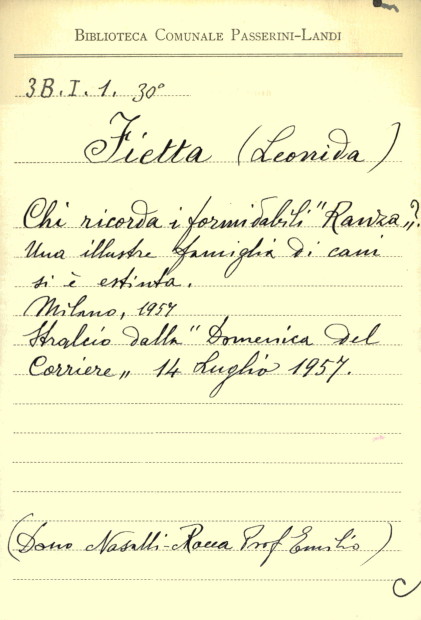 BIBLIOTECA COMUNALE PASSERINI-LANDI
3B.I.1. 30°
Fietta (Leonida)
Chi ricorda i formidabili "Ranza„?
Una illustre famiglia di cani
si è estinta.
Milano, 1957
Stralcio dalla "Domenica del
Corriere„ 14 Luglio 1957.
(Dono Nasalli-Rocca Prof Emilio)